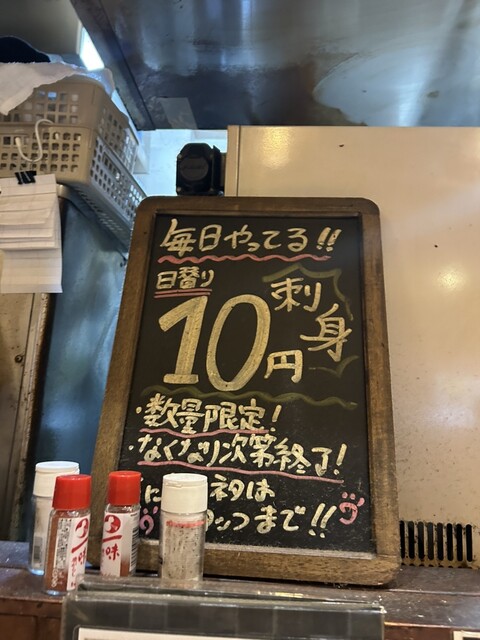 毎日やってる!!
日替り
10円
刺身
・数量限定!
・なくなり次第終了!
ネタは
まで!!
味
味